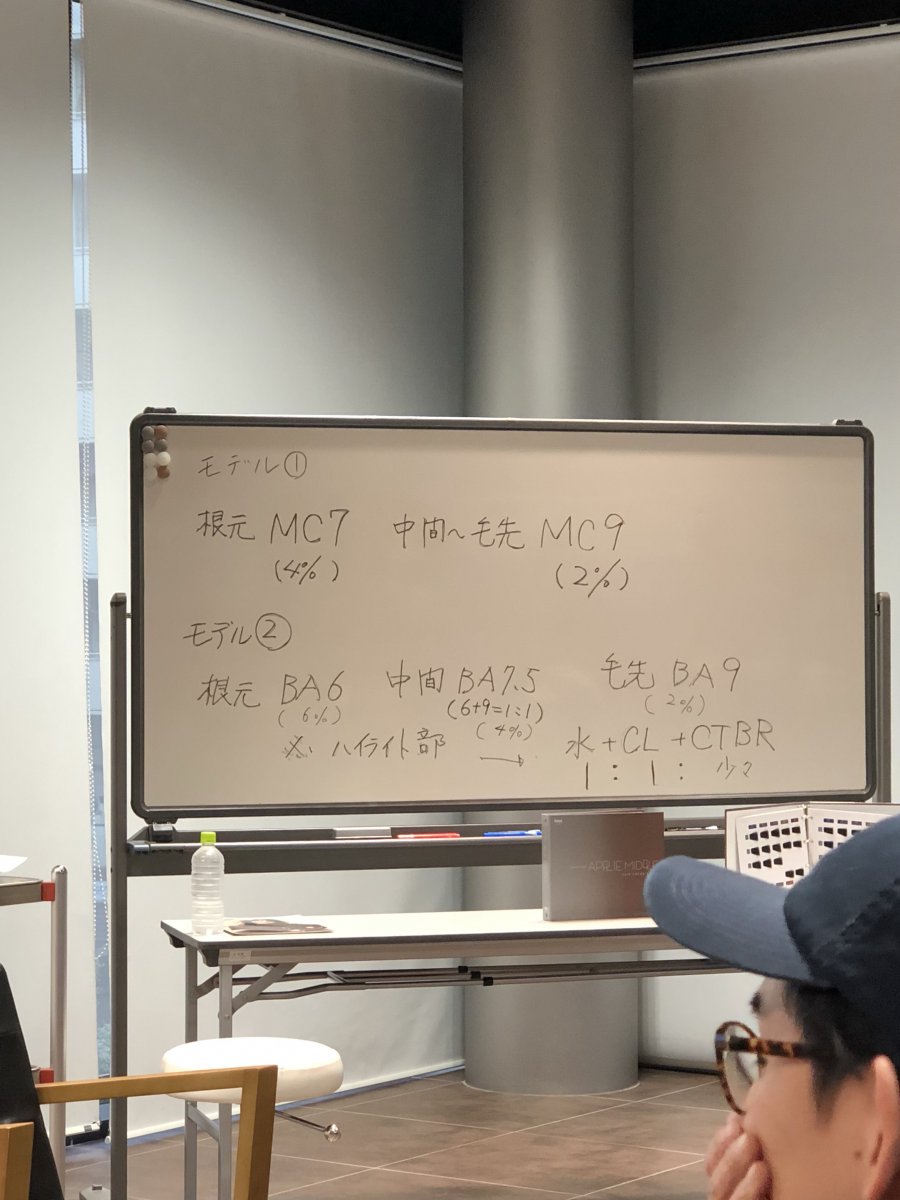 モデル①
根元 MC7 中間～毛先 MC9
(4%) (2%)
モデル②
根元 BA6 中間 BA7.5 毛先 BA9
(6%) (6+9=1:1) (2%)
(4%)
※ ハイライト部 → 水+CL+CTBR
1 : 1 : 少々
APPLIE MIDDLE